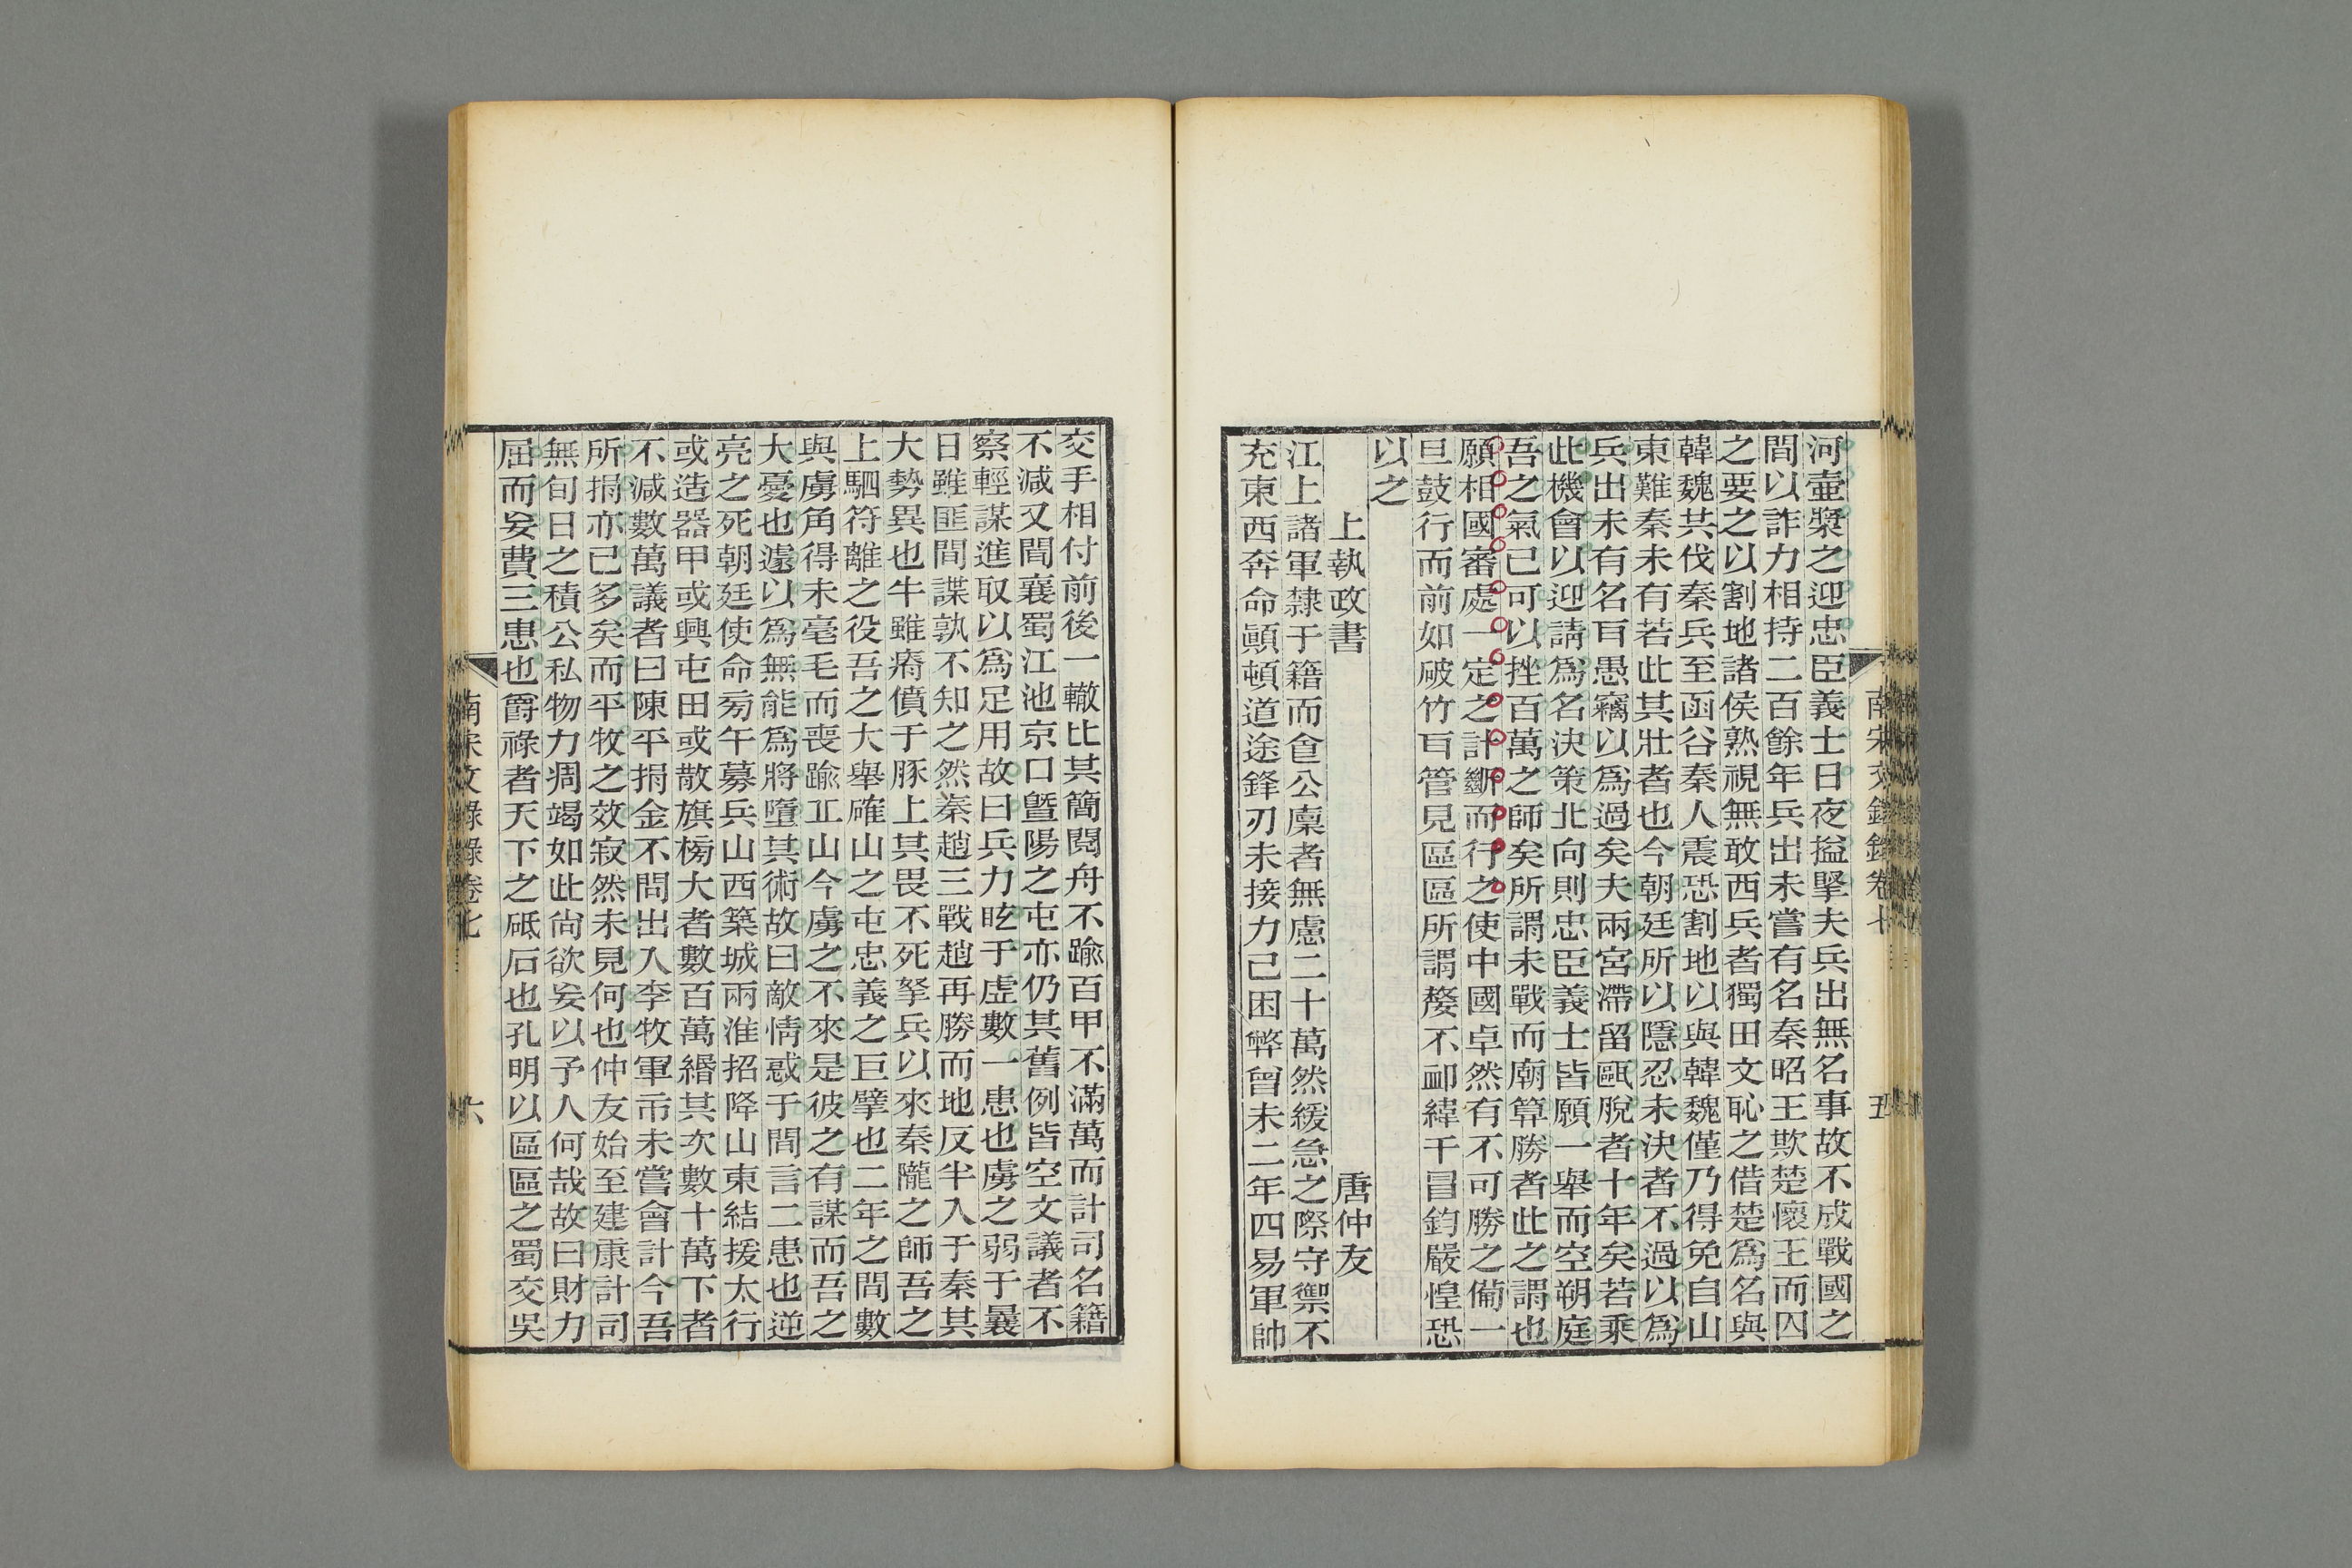 河壷漿之迎忠臣義士日夜搤掔夫兵出無名事故不成戰國之
間以詐力相持二百餘年兵出未嘗有名秦昭王欺楚懷王而囚
之要之以割地諸侯熟視無敢西兵者獨田文恥之借楚爲名與
韓魏共伐秦兵至函谷秦人震恐割地以與韓魏僅乃得免自山
東難秦未有若此其壯者也今朝廷所以隱忍未決者不過以爲
兵出未有名耳愚竊以爲過矣夫兩宮滯留甌脫者十年矣若乘
此機會以迎請爲名決策北向則忠臣義士皆願一舉而空朔庭
吾之氣已可以挫百萬之師矣所謂未戰而廟算勝者此之謂也
願相國審處一定之計斷而行之使中國卓然有不可勝之備一
旦鼓行而前如破竹耳管見區區所謂嫠不卹緯干冒鈞嚴惶恐
以之
上執政書 唐仲友
江上諸軍隸于籍而食公廩者無慮二十萬然緩急之際守禦不
充東西奔命顚頓道途鋒刃未接力已困弊曾未二年四易軍帥
南宋文錄錄卷七 五
交手相付前後一轍比其簡閱舟不踰百甲不滿萬而計司名籍
不減又聞襄蜀江池京口曁陽之屯亦仍其舊例皆空文議者不
察輕謀進取以爲足用故曰兵力眩于虛數一患也虜之弱于曩
日雖匪間諜孰不知之然秦趙三戰趙再勝而地反半入于秦其
大勢異也牛雖瘠僨于豚上其畏不死拏兵以來秦隴之師吾之
上駟符離之役吾之大舉確山之屯忠義之巨擘也二年之間數
與虜角得未毫毛而喪踰丘山今虜之不來是彼之有謀而吾之
大憂也遽以爲無能爲將墮其術故曰敵情惑于間言二患也逆
亮之死朝廷使命旁午募兵山西築城兩淮招降山東結援太行
或造器甲或興屯田或散旗榜大者數百萬緡其次數十萬下者
不減數萬議者曰陳平捐金不問出入李牧軍市未嘗會計今吾
所捐亦已多矣而平牧之效寂然未見何也仲友始至建康計司
無旬日之積公私物力凋竭如此尙欲妄以予人何哉故曰財力
屈而妄費三患也爵祿者天下之砥石也孔明以區區之蜀交吳
南宋文錄錄卷七 六